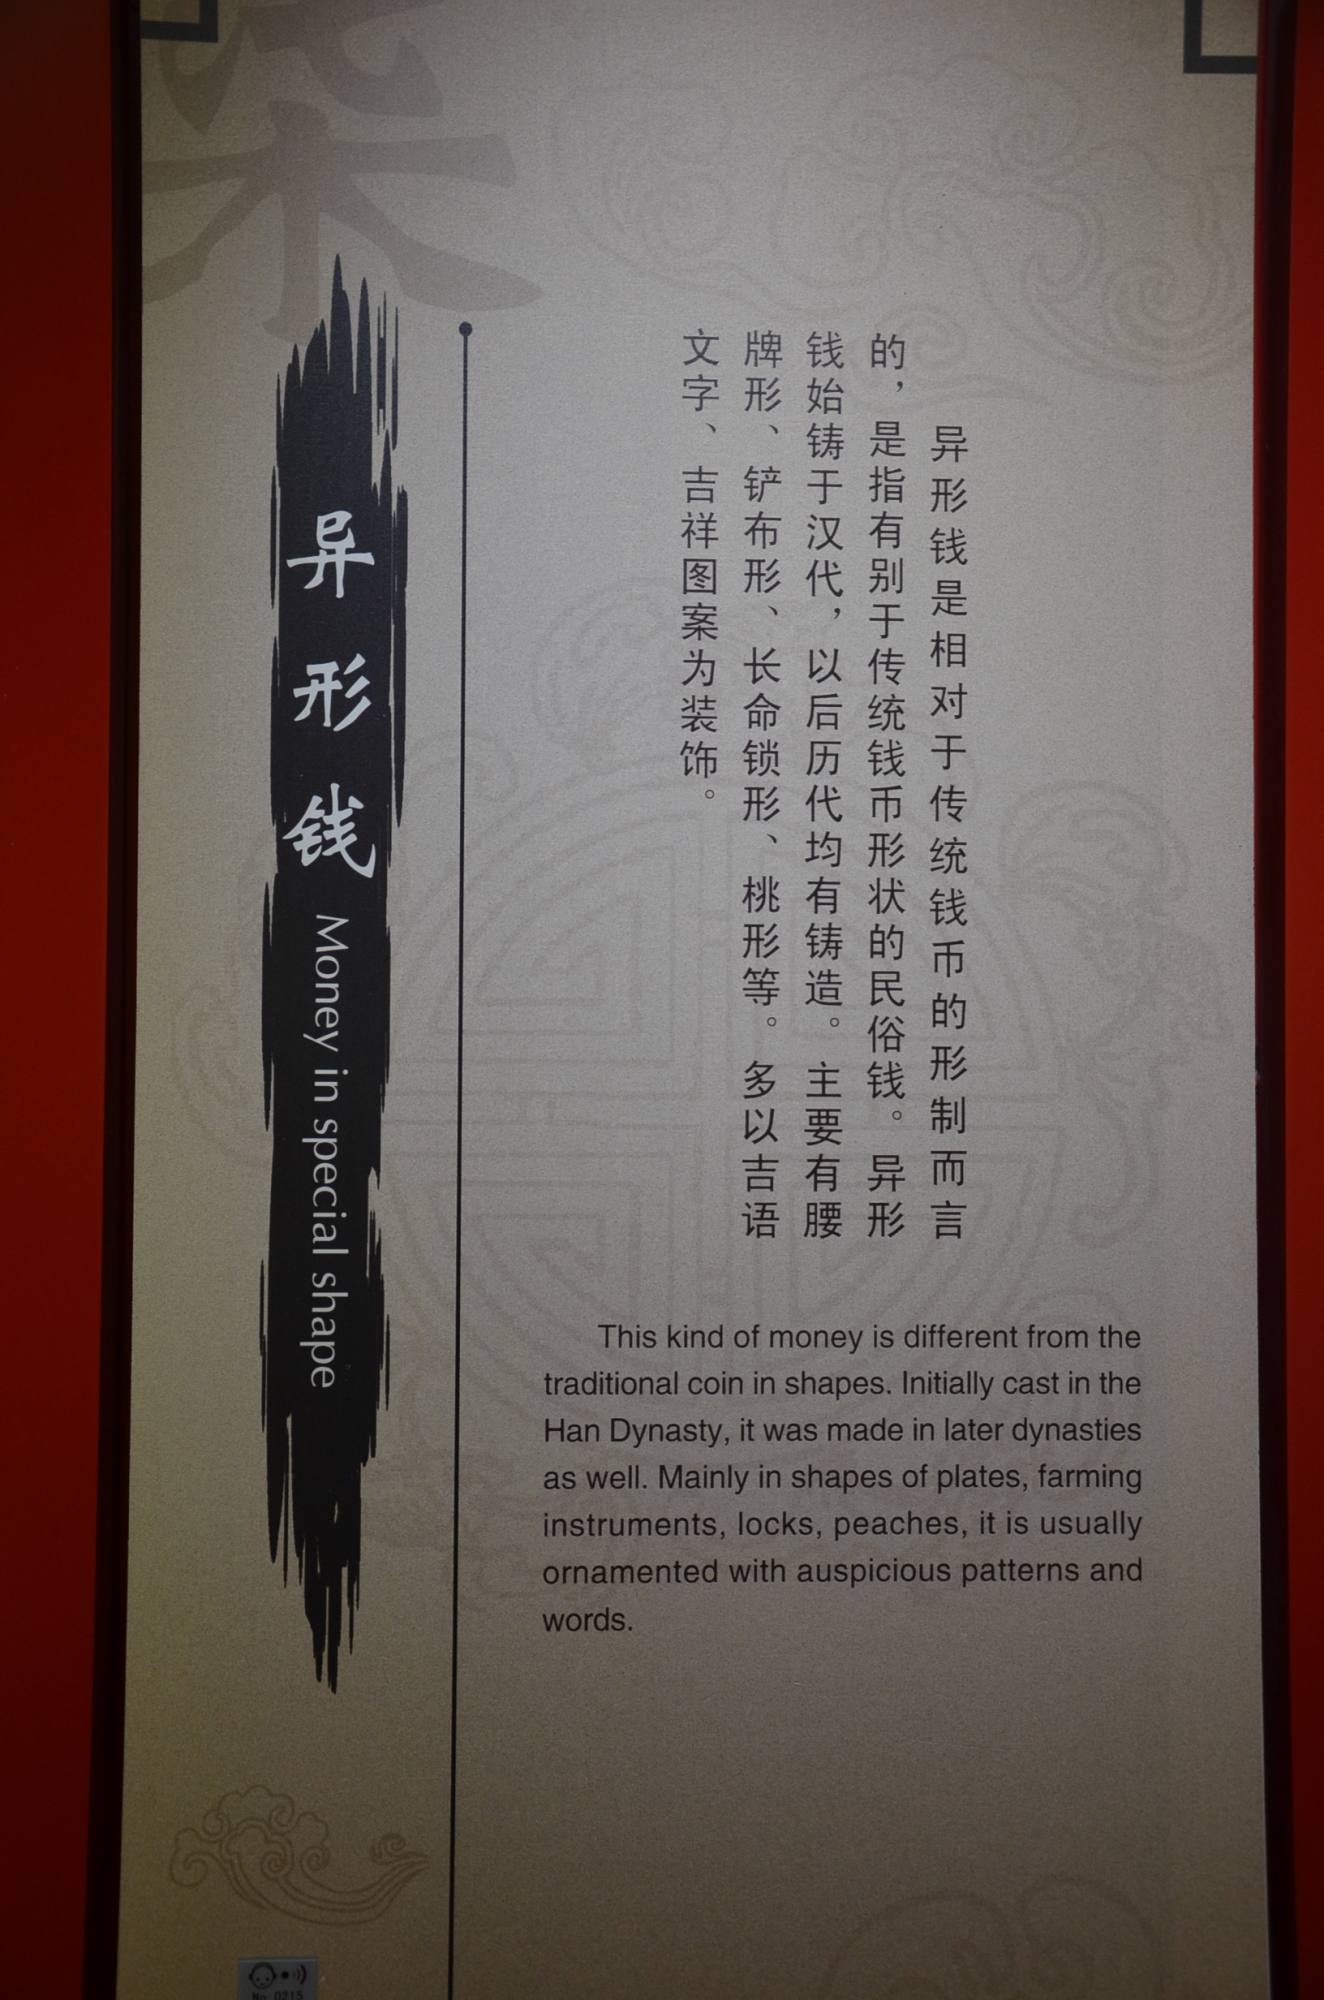 异形钱
Money in special shape
异形钱是相对于传统钱币的形制而言
的，是指有别于传统钱币形状的民俗钱。异形
钱始铸于汉代，以后历代均有铸造。主要有腰
牌形、铲布形、长命锁形、桃形等。多以吉语
文字、吉祥图案为装饰。
This kind of money is different from the
traditional coin in shapes. Initially cast in the
Han Dynasty, it was made in later dynasties
as well. Mainly in shapes of plates, farming
instruments, locks, peaches, it is usually
ornamented with auspicious patterns and
words.
No. 0215